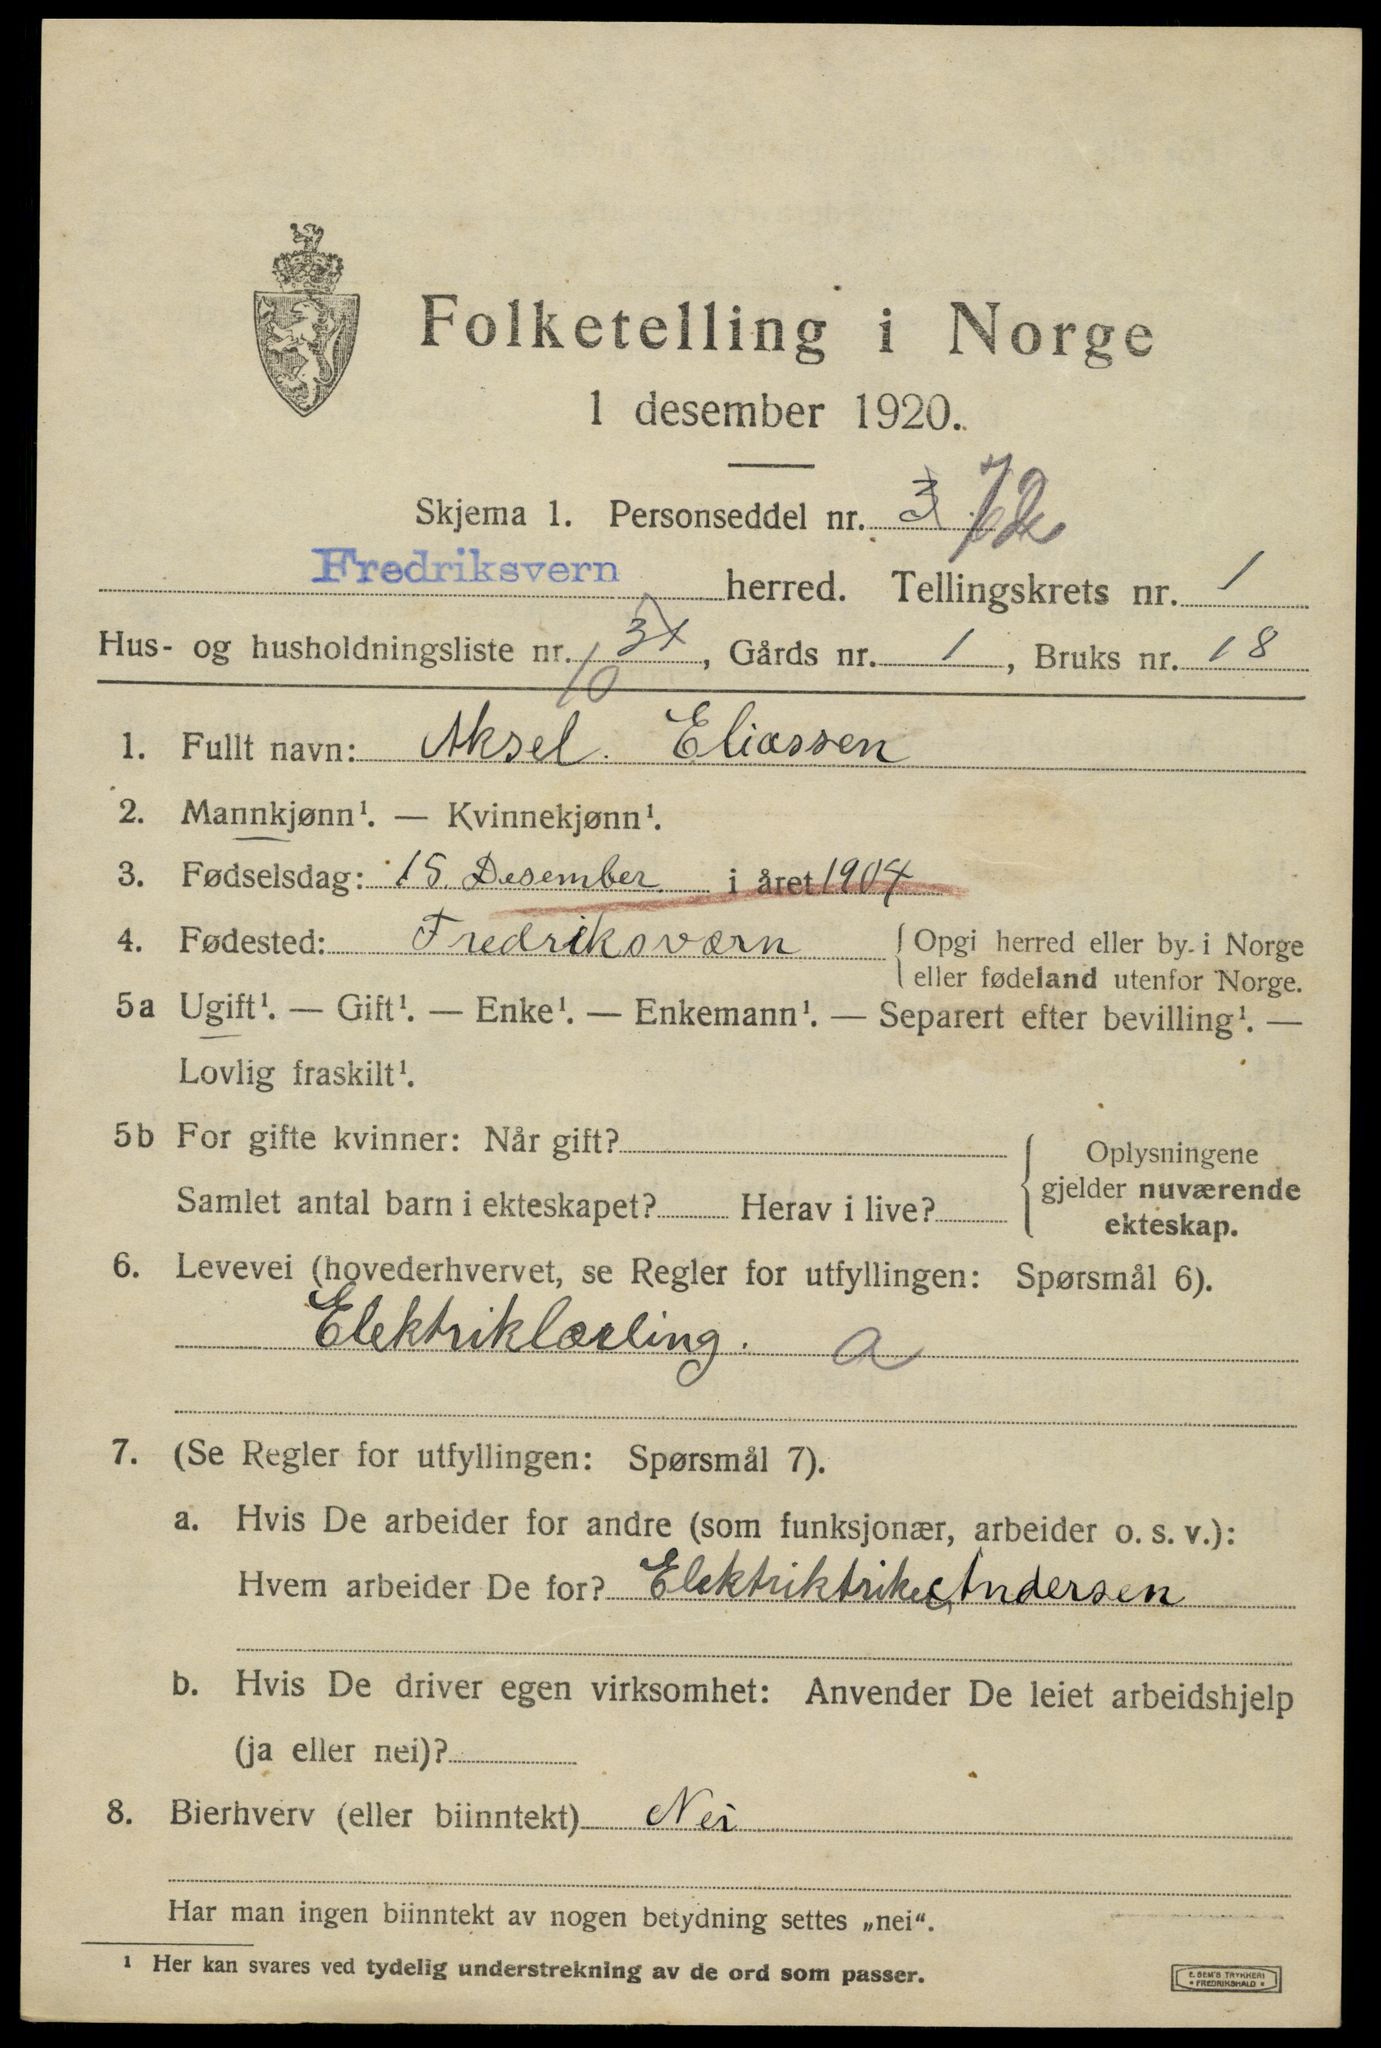 Folketelling i Norge
1 desember 1920.
Skjema 1. Personseddel nr. 3 72
Fredriksvern herred. Tellingskrets nr. 1
Hus- og husholdningsliste nr. 3 10, Gårds nr. 1, Bruks nr. 18
1. Fullt navn: Aksel. Eliassen
2. Mannkjønn¹. — Kvinnekjønn¹.
3. Fødselsdag: 15. Desember. i året 1904
4. Fødested: Fredriksværn { Opgi herred eller by i Norge
eller fødeland utenfor Norge.
5a Ugift¹. — Gift¹. — Enke¹. — Enkemann¹. — Separert efter bevilling¹. —
Lovlig fraskilt¹.
5b For gifte kvinner: Når gift? { Oplysningene
gjelder nuværende
ekteskap.
Samlet antal barn i ekteskapet? Herav i live?
6. Levevei (hovederhvervet, se Regler for utfyllingen: Spørsmål 6).
Elektriklærling. a
7. (Se Regler for utfyllingen: Spørsmål 7).
a. Hvis De arbeider for andre (som funksjonær, arbeider o. s. v.):
Hvem arbeider De for? Elektriktriker Andersen
b. Hvis De driver egen virksomhet: Anvender De leiet arbeidshjelp
(ja eller nei)?
8. Bierhverv (eller biinntekt) Nei
Har man ingen biinntekt av nogen betydning settes „nei“.
¹ Her kan svares ved tydelig understrekning av de ord som passer.
E. SEM'S TRYKKERI
• FREDRIKSHALD •